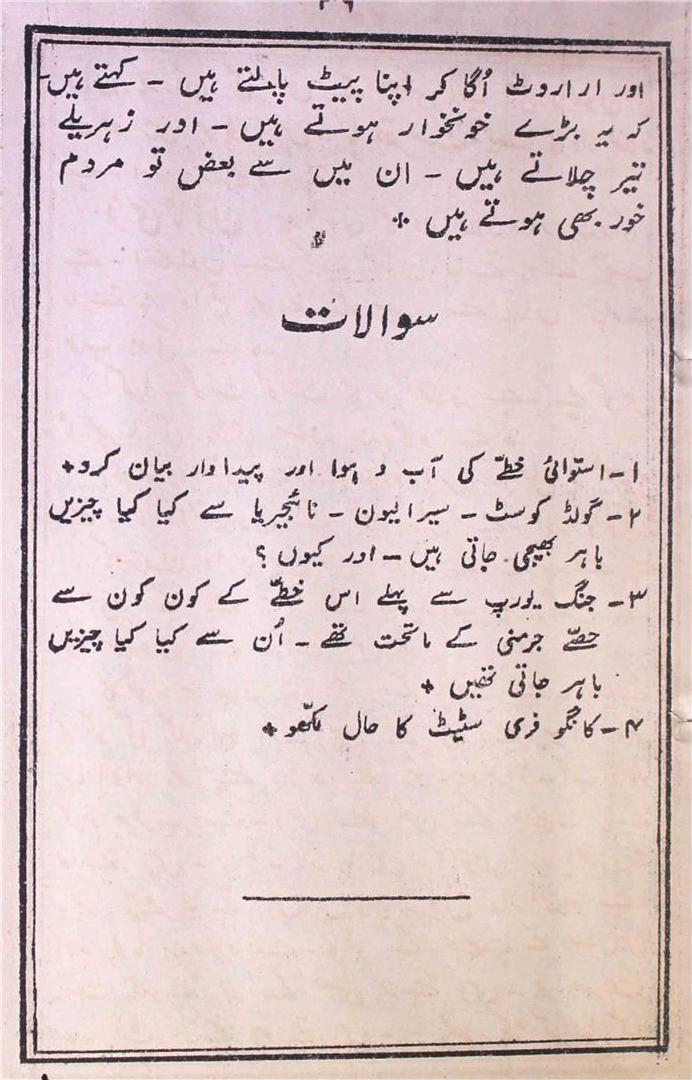 اور اراروٹ اُگا کر اپنا پیٹ پالتے ہیں - کہتے ہیں
کہ یہ بڑے خونخوار ہوتے ہیں - اور زہریلے
تیر چلاتے ہیں - ان میں سے بعض تو مردم
خور بھی ہوتے ہیں +
سوالات
۱- استوائی خطّے کی آب و ہوا اور پیداوار بیان کرو +
۲- گولڈ کوسٹ - سیرالیون - نائیجیریا سے کیا کیا چیزیں
باہر بھیجی جاتی ہیں - اور کیوں ؟
۳- جنگ یورپ سے پہلے اس خطّے کے کون کون سے
حصّے جرمنی کے ماتحت تھے - اُن سے کیا کیا چیزیں
باہر جاتی تھیں +
۴- کانگو فری سٹیٹ کا حال لکھو +